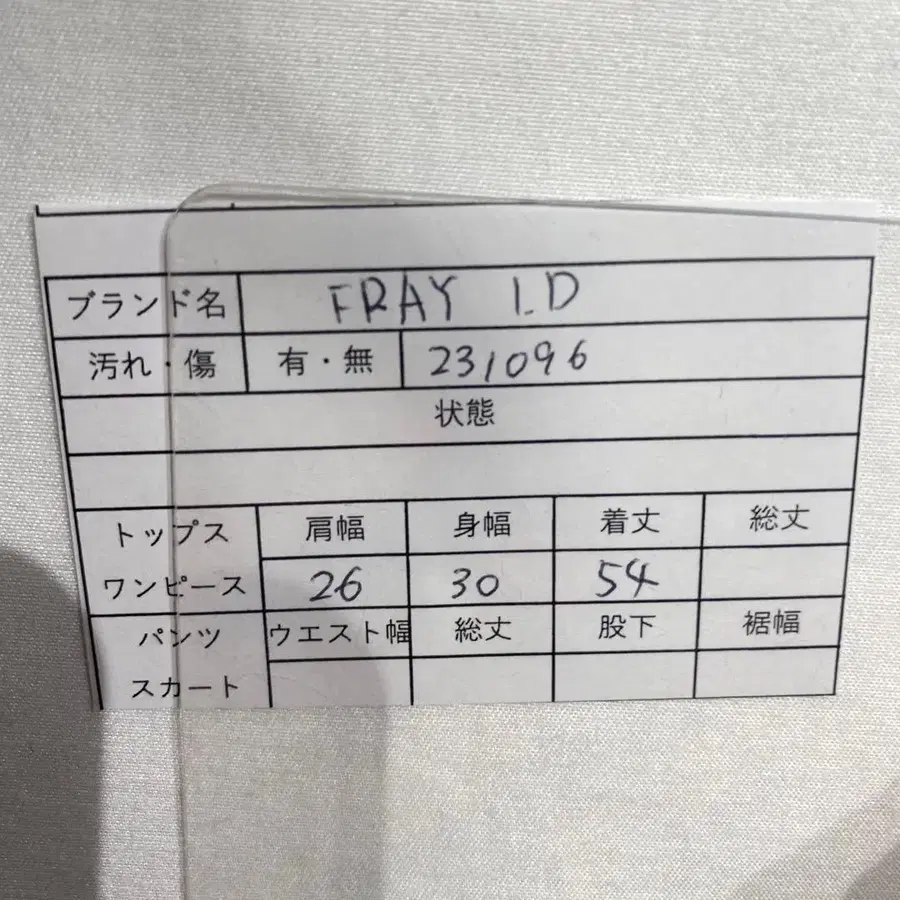 ブランド名 FRAY I.D
汚れ・傷 有・無 231096
状態
トップス 肩幅 身幅 着丈 総丈
ワンピース 26 30 54
パンツ ウエスト幅 総丈 股下 裾幅
スカート